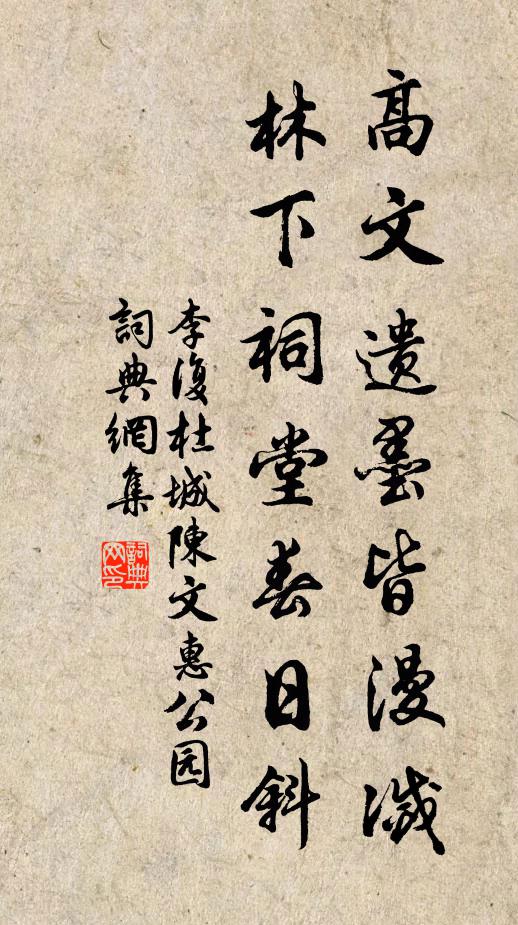 高文遗墨皆漫滅
林下祠堂春日斜
李復杜城陳文惠公园
詞典網集
詞典網印